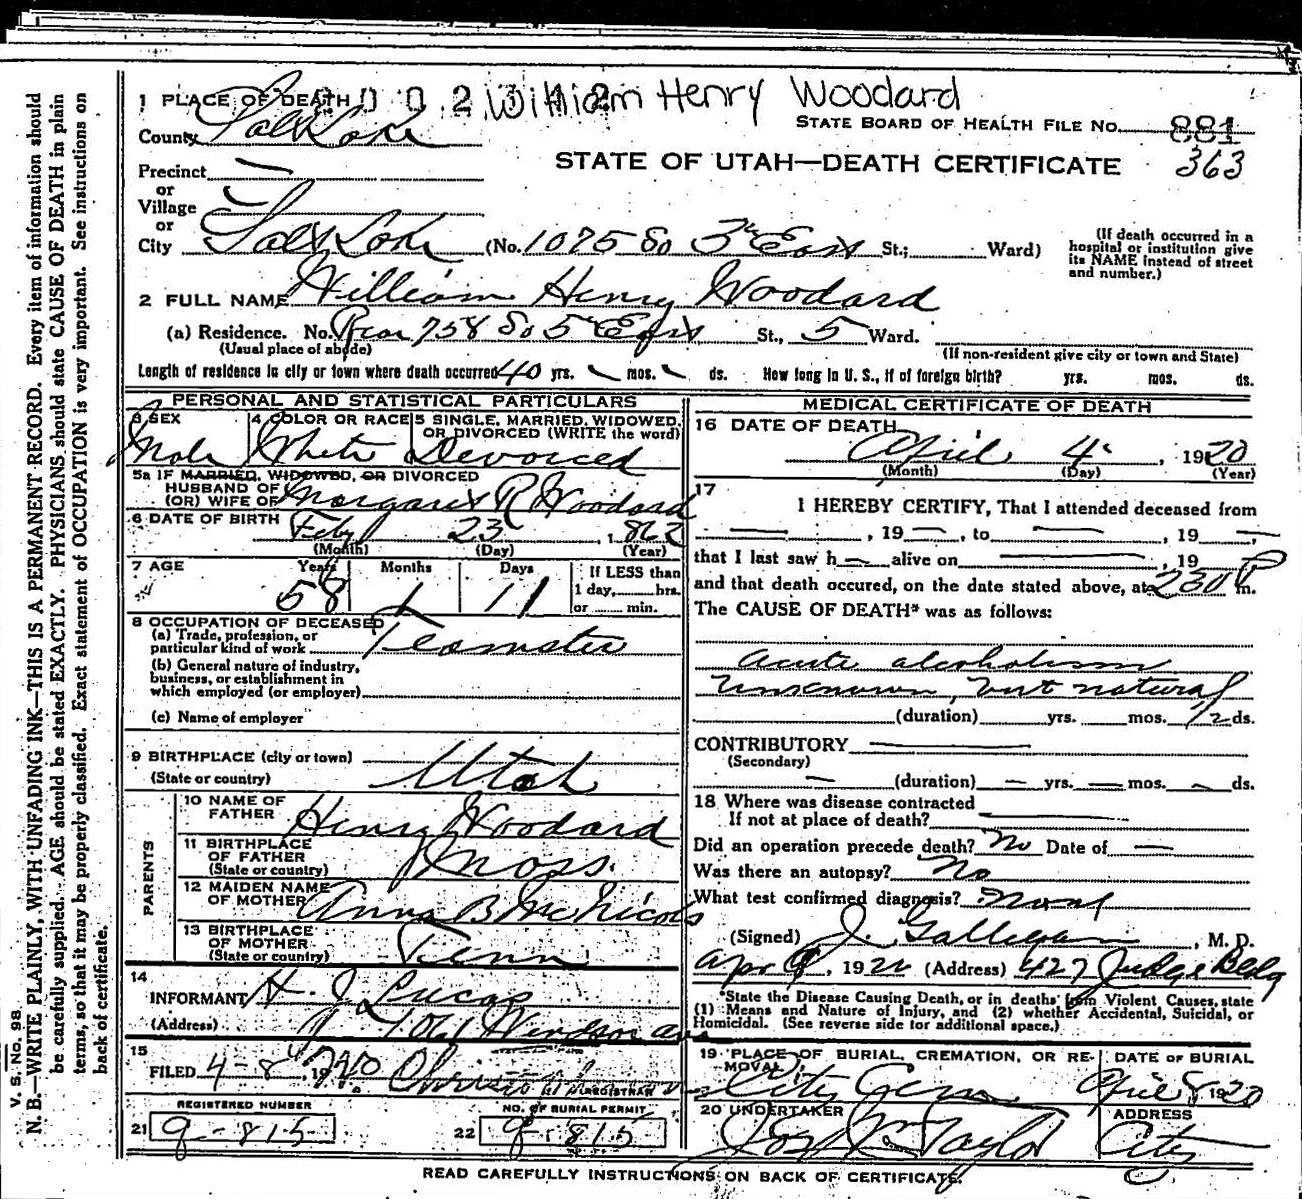 William Henry Woodard
1 PLACE OF DEATH
County Salt Lake
STATE BOARD OF HEALTH FILE No. 881
363
STATE OF UTAH—DEATH CERTIFICATE
Precinct
or
Village
or
City Salt Lake (No. 1075 So 3d East St.; Ward)
(If death occurred in a
hospital or institution give
its NAME instead of street
and number.)
2 FULL NAME William Henry Woodard
(a) Residence. No. Rear 758 So 5 East St., 5 Ward.
(Usual place of abode)
(If non-resident give city or town and State)
Length of residence in city or town where death occurred 40 yrs. mos. ds. How long in U. S., if of foreign birth? yrs. mos. ds.
PERSONAL AND STATISTICAL PARTICULARS
3 SEX
Male
4 COLOR OR RACE
White
5 SINGLE, MARRIED, WIDOWED,
OR DIVORCED (WRITE the word)
Devorced
5a IF MARRIED, WIDOWED, OR DIVORCED
HUSBAND OF
(OR) WIFE OF Margaret R Woodard
6 DATE OF BIRTH Feby 23, 1862
(Month) (Day) (Year)
7 AGE
Years Months Days If LESS than
58 1 11 1 day, hrs.
or min.
8 OCCUPATION OF DECEASED
(a) Trade, profession, or
particular kind of work Teamster
(b) General nature of industry,
business, or establishment in
which employed (or employer)
(c) Name of employer
9 BIRTHPLACE (city or town)
(State or country) Utah
PARENTS
10 NAME OF
FATHER Henry Woodard
11 BIRTHPLACE
OF FATHER
(State or country) Mass.
12 MAIDEN NAME
OF MOTHER Anna B McNicols
13 BIRTHPLACE
OF MOTHER
(State or country) Tenn
14
INFORMANT H. J Lucas
(Address) Windsor ave
15
FILED 4-8, 1920
REGISTRAR
REGISTERED NUMBER
21 9-815
NO. OF BURIAL PERMIT
22 9-815
MEDICAL CERTIFICATE OF DEATH
16 DATE OF DEATH
April 4, 1920
(Month) (Day) (Year)
17
I HEREBY CERTIFY, That I attended deceased from
, 19 , to , 19
that I last saw h alive on , 19
and that death occured, on the date stated above, at 230 P m.
The CAUSE OF DEATH* was as follows:
acute alcoholism
unknown, but natural
(duration) yrs. mos. 1/2 ds.
CONTRIBUTORY
(Secondary)
(duration) yrs. mos. ds.
18 Where was disease contracted
If not at place of death?
Did an operation precede death? No Date of
Was there an autopsy? No
What test confirmed diagnosis?
(Signed) J. Galligan, M. D.
Apr, 1920 (Address) 427 Judge Bldg
*State the Disease Causing Death, or in deaths from Violent Causes, state
(1) Means and Nature of Injury, and (2) whether Accidental, Suicidal, or
Homicidal. (See reverse side for additional space.)
19 PLACE OF BURIAL, CREMATION, OR RE-
MOVAL
City Cem
DATE OF BURIAL
April 8 1920
20 UNDERTAKER
Taylor
ADDRESS
City
READ CAREFULLY INSTRUCTIONS ON BACK OF CERTIFICATE.
V. S. No. 98
N. B.—WRITE PLAINLY, WITH UNFADING INK—THIS IS A PERMANENT RECORD. Every item of information should
be carefully supplied. AGE should be stated EXACTLY. PHYSICIANS should state CAUSE OF DEATH in plain
terms, so that it may be properly classified. Exact statement of OCCUPATION is very important. See instructions on
back of certificate.